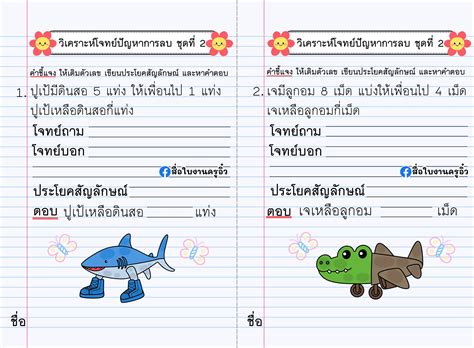 วิเคราะห์โจทย์ปัญหาการลบ ชุดที่ 2
คำชี้แจง ให้เติมตัวเลข เขียนประโยคสัญลักษณ์ และหาคำตอบ
1. ปูเป้มีดินสอ 5 แท่ง ให้เพื่อนไป 1 แท่ง
ปูเป้เหลือดินสอกี่แท่ง
โจทย์ถาม
โจทย์บอก
สื่อใบงานครูอิ๋ว
ประโยคสัญลักษณ์
ตอบ ปูเป้เหลือดินสอ แท่ง
ชื่อ
วิเคราะห์โจทย์ปัญหาการลบ ชุดที่ 2
คำชี้แจง ให้เติมตัวเลข เขียนประโยคสัญลักษณ์ และหาคำตอบ
2. เจมีลูกอม 8 เม็ด แบ่งให้เพื่อนไป 4 เม็ด
เจเหลือลูกอมกี่เม็ด
โจทย์ถาม
โจทย์บอก
สื่อใบงานครูอิ๋ว
ประโยคสัญลักษณ์
ตอบ เจเหลือลูกอม เม็ด
ชื่อ